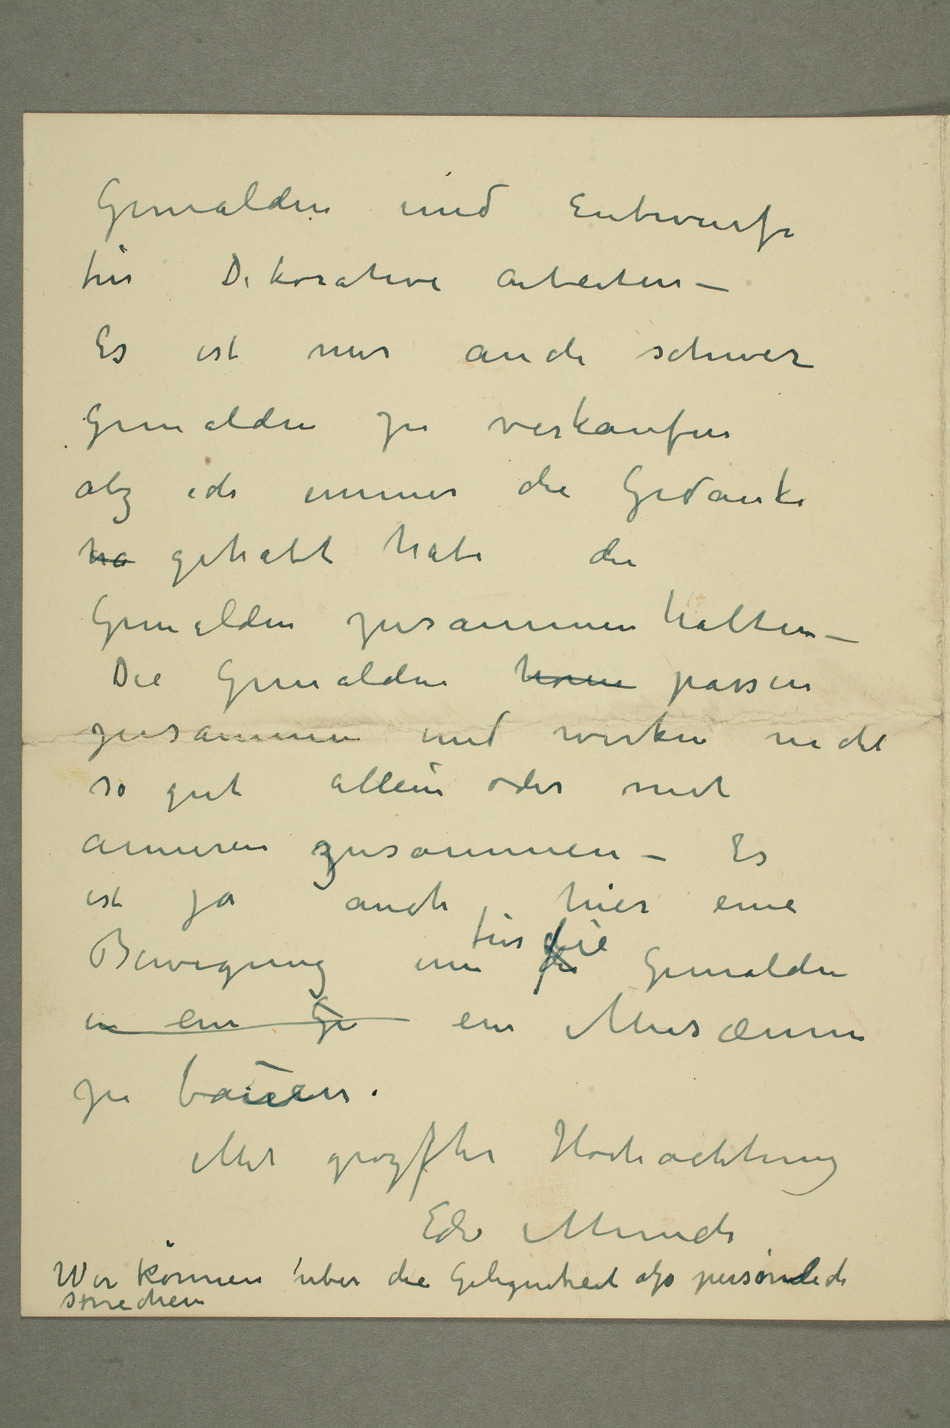 Gemälden und Entwürfe
für Dekorative arbeiten –
Es ist mir auch schwer
Gemälden zu verkaufen
alz ich immer die Gedanke
ha gehabt habe die
Gemälden zusammen halten –
Die Gemälden passen
zusammen und wirken nicht
so gut allein oder mit
anneren zusammen – Es
ist ja auch hier eine
Bewegung um für die Gemälden
in ein Ge ein Musæum
zu bauen.
Mit grozfter Hochachtung
Edv Munch
Wir können über die Gelegenheit alzo persönlich
sprechen